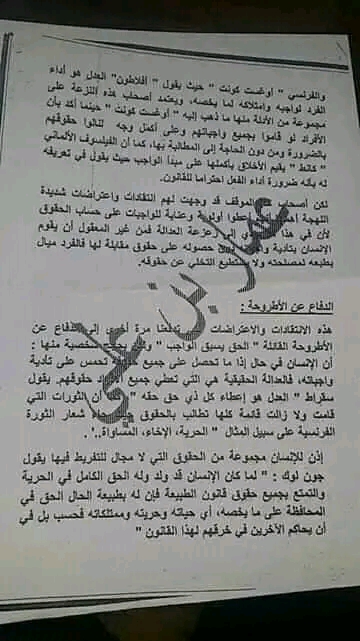 والفرنسي " أوغست كونت " حيث يقول " أفلاطون" العدل هو أداء
الفرد لواجبه وامتلاكه لما يخصه، ويعتمد أصحاب هذه النزعة على
مجموعة من الأدلة منها ما ذهب إليه " أوغست كونت " حينما أكد بأن
الأفراد لو قاموا بجميع واجباتهم وعلى أكمل وجه لنالوا حقوقهم
بالضرورة ومن دون الحاجة إلى المطالبة بها، كما أن الفيلسوف الألماني
" كانط " يقيم الأخلاق بأكملها على مبدأ الواجب حيث يقول في تعريفه
له بأنه ضرورة أداء الفعل احتراما للقانون.
لكن أصحاب الموقف قد وجهت لهم انتقادات واعتراضات شديدة
اللهجة أعطوا أولوية وعناية للواجبات على حساب الحقوق
لأن في هذا لزعزعة العدالة فمن غير المعقول أن يقوم
الإنسان بتأدية حصوله على حقوق مقابلة لها فالفرد ميال
بطبعه لمصلحته ولا يستطيع التخلي عن حقوقه.
الدفاع عن الأطروحة :
هذه الانتقادات والاعتراضات تدفعنا مرة أخرى إلى الدفاع عن
الأطروحة القائلة " الحق يسبق الواجب " شخصية منها :
أن الإنسان في حال إذا ما تحصل على جميع تحمس على تأدية
واجباته، فالعدالة الحقيقية هي التي تعطي جميع حقوقهم. يقول
سقراط " العدل هو إعطاء كل ذي حق حقه " أن الثورات التي
قامت ولا زالت قائمة كلها تطالب بالحقوق شعار الثورة
الفرنسية على سبيل المثال " الحرية، الإخاء، المساواة..".
إذن للإنسان مجموعة من الحقوق التي لا مجال للتفريط فيها يقول
جون لوك : " لما كان الإنسان قد ولد وله الحق الكامل في الحرية
والتمتع بجميع حقوق قانون الطبيعة فإن له بطبيعة الحال الحق في
المحافظة على ما يخصه، أي حياته وحريته وممتلكاته فحسب بل في
أن يحاكم الآخرين في خرقهم لهذا القانون "
عمار بن علي